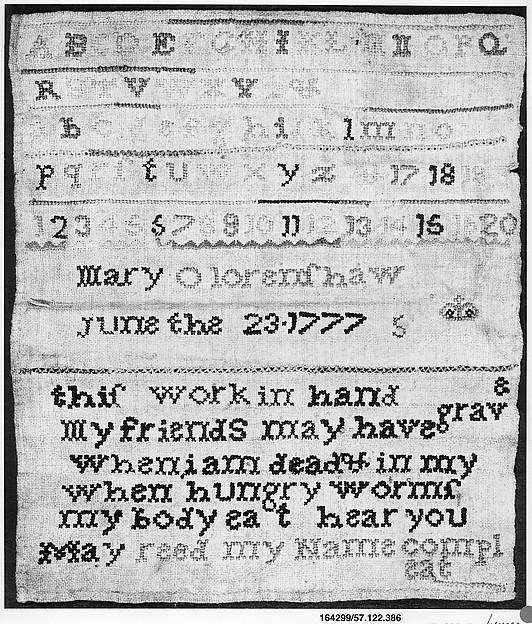 A B C D E F G H I K L M N O P Q
R S T V W X Y Z
a b c d e f g h i k l m n o
p q r s t u w x y z 17 18
1 2 3 4 5 6 7 8 9 10 11 12 13 14 15 20
Mary O lorenſhaw
june the 23·1777 S
thiſ work in hand
my friends may have
when i am dead & in my grave
when hungry wormſ
my body eat hear you
May reed my Name compl
eat
164299/57.122.386